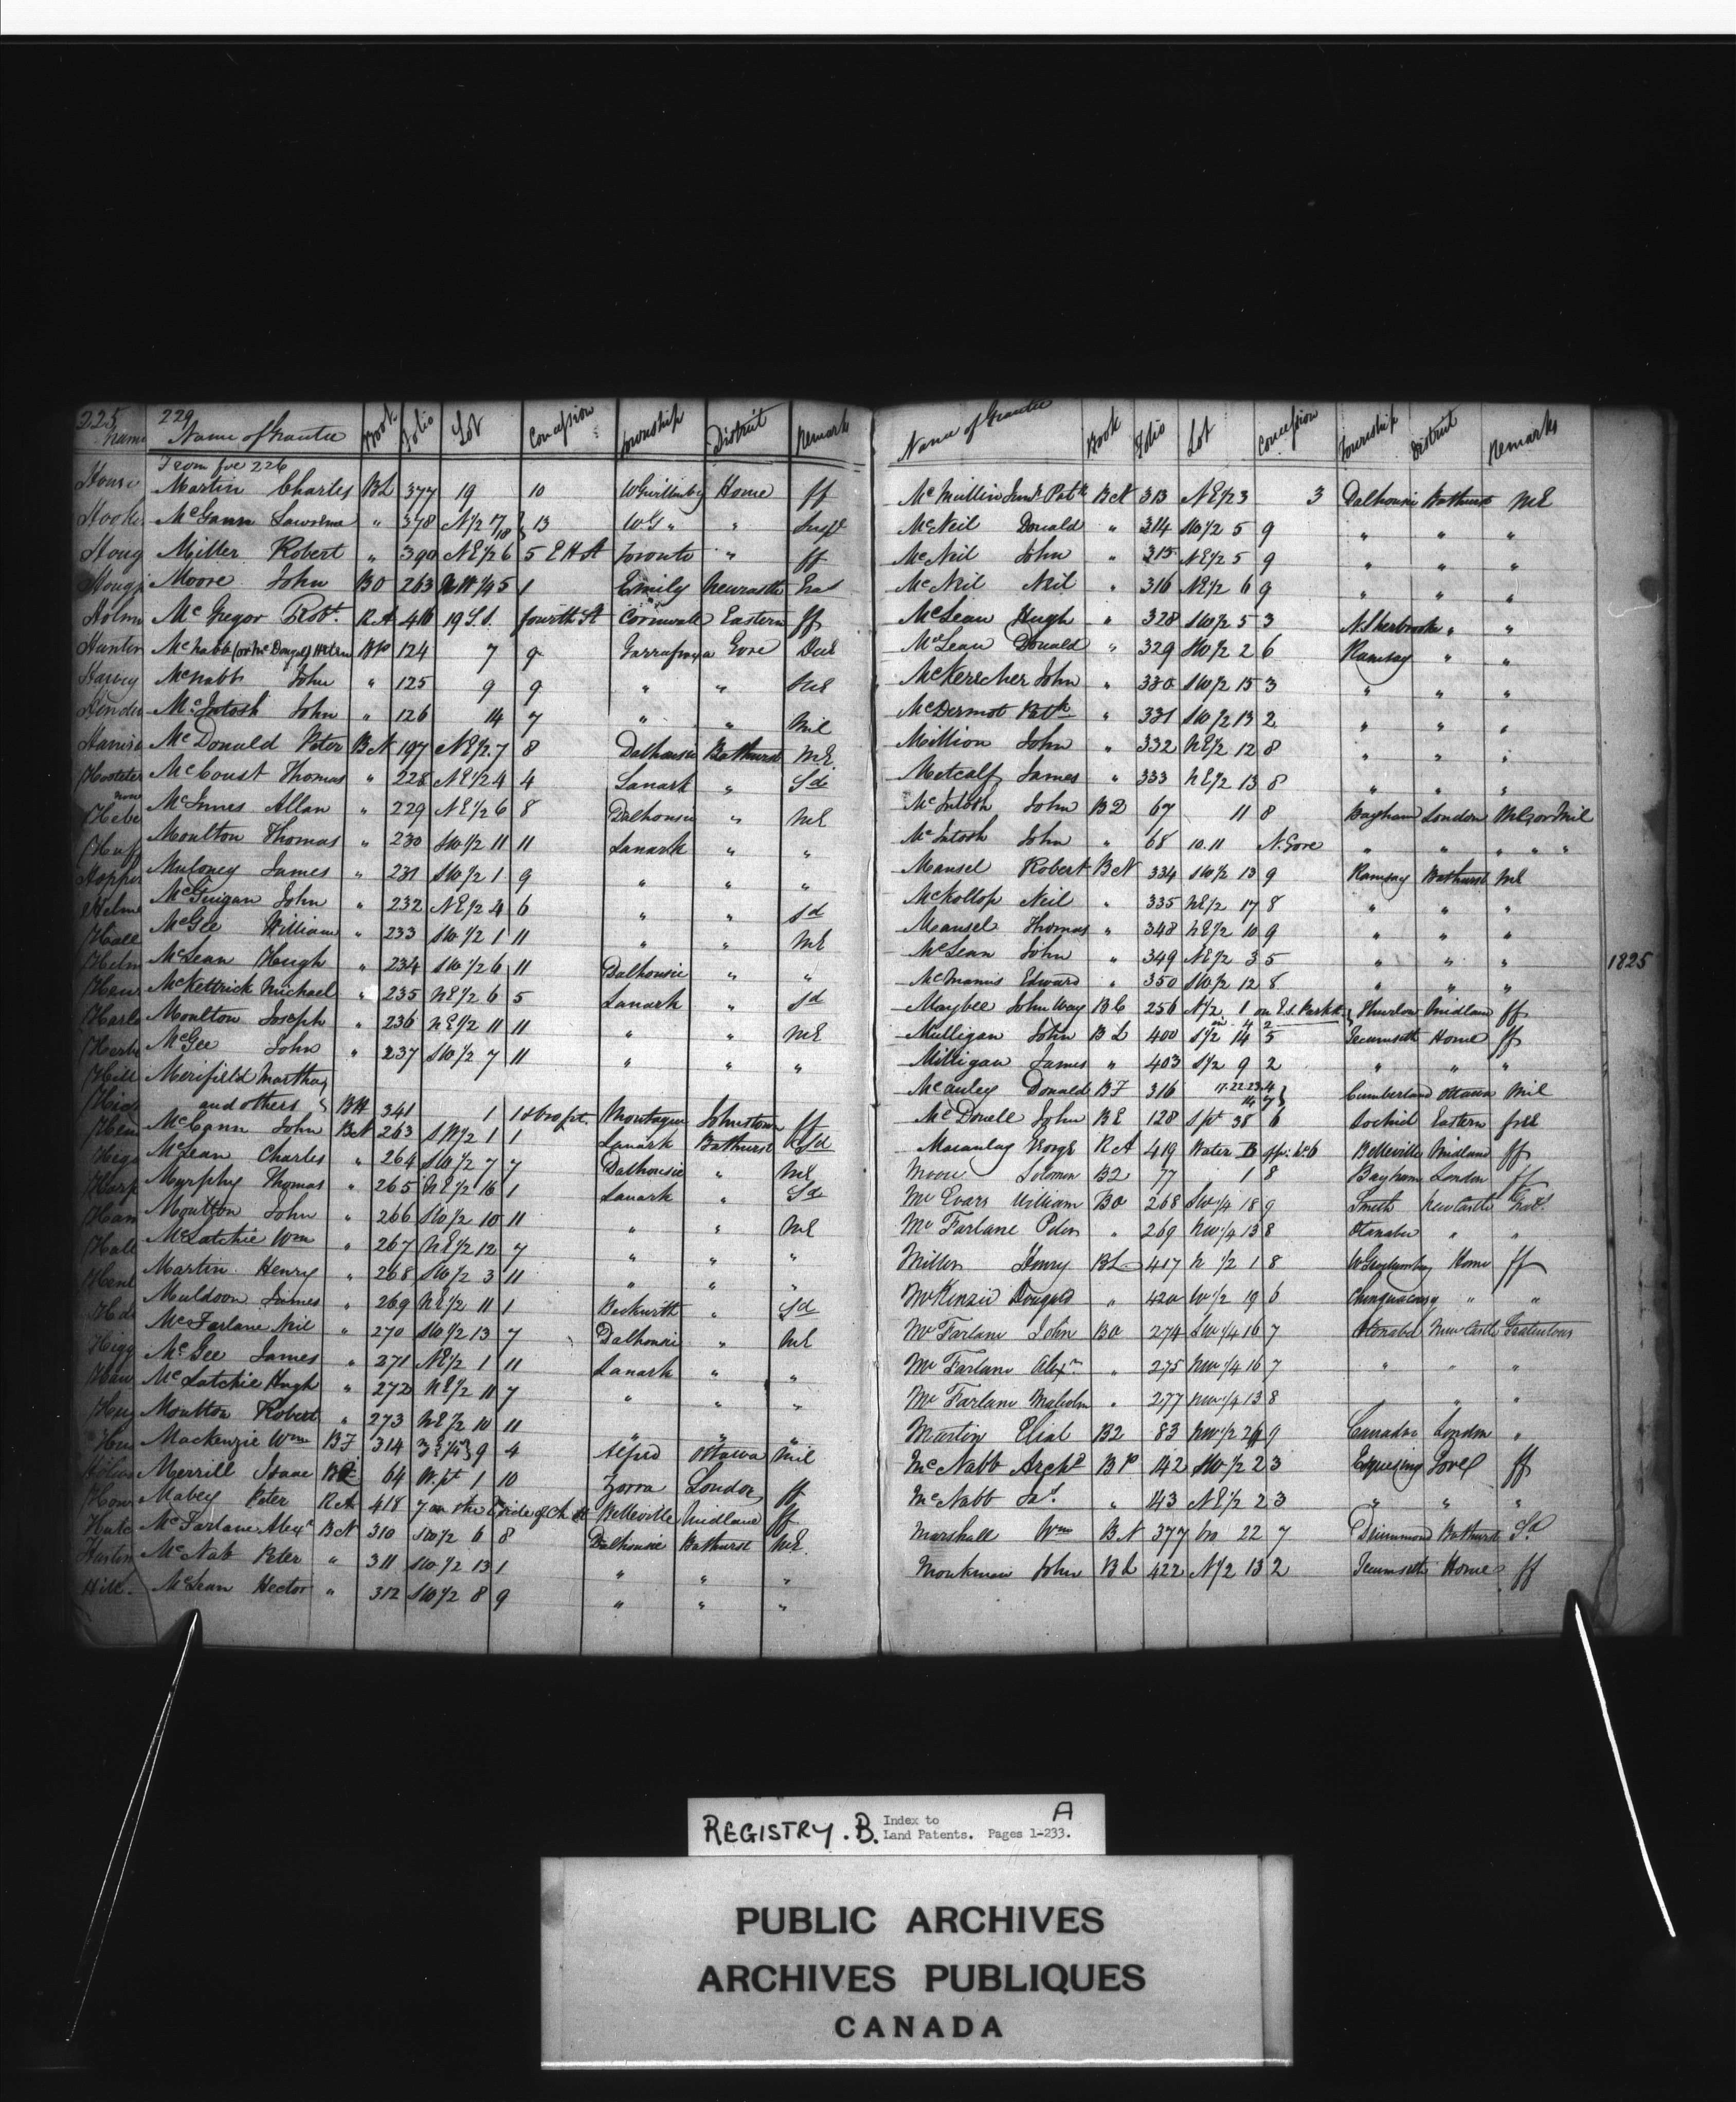 225 229
Name Name of Grantee Book Folio Lot Concession Township District Remarks
From foe 226
Martin Charles BL 377 19 10 WGwillimby Home ff
McGann Lawrence " 378 N1/2 17/18 } 13 WG " "
Miller Robert " 390 NE1/2 6 5 E H St Toronto " ff
Moore John BO 263 1/4 5 1 Emily Newcastle
McGregor Robt RA 416 19 S.S. fourth St Cornwall Eastern ff
McNabb (or McDougal) BP 124 7 9 Garrafraxa Gore
McNabb John " 125 9 9 " "
McIntosh John " 126 14 7 " " Mil
McDonald Peter BN 197 NE1/2 7 8 Dalhousie Bathurst ME
McCoust Thomas " 228 NE1/2 4 4 Lanark " Sd
McInnes Allan " 229 NE1/2 6 8 Dalhousie " ME
Moulton Thomas " 230 SW1/2 11 11 Lanark " "
Muloney James " 231 SW1/2 1 9 " " "
McGuigan John " 232 NE1/2 4 6 " " Sd
McGee William " 233 SW1/2 1 11 " " ME
McLean Hugh " 234 SW1/2 6 11 Dalhousie " "
McKettrick Michael " 235 NE1/2 6 5 Lanark " Sd
Moulton Joseph " 236 NE1/2 11 11 " " ME
McGee John " 237 SW1/2 7 11 " " "
Merifield Martha
and others } BH 341 1 1 Montague Johnstown ff
McCann John BN 263 SW1/2 1 1 Lanark Bathurst Sd
McLean Charles " 264 SW1/2 7 7 Dalhousie " ME
Murphy Thomas " 265 NE1/2 16 1 Lanark " Sd
Moulton John " 266 SW1/2 10 11 " " ME
McLatchie Wm " 267 NE1/2 12 7 " " "
Martin Henry " 268 SW1/2 3 11 " " "
Muldoon James " 269 NE1/2 11 1 Beckwith " Sd
McFarlane Neil " 270 SW1/2 13 7 Dalhousie " ME
McGee James " 271 NE1/2 1 11 Lanark " "
McLatchie Hugh " 272 NE1/2 11 7 " "
Moulton Robert " 273 NE1/2 10 11 " " "
Mackenzie Wm BF 314 9 4 Alfred Ottawa Mil
Merrill Isaac 64 W.pt 1 10 Zorra London ff
Mabey Peter RA 418 7 on the E side of Ch St Belleville Midland ff
McFarlane Alexr BN 310 SW1/2 6 8 Dalhousie Bathurst ME
McNab Peter " 311 SW1/2 13 1 " " "
McLean Hector " 312 SW1/2 8 9 " " "
Name of Grantee Book Folio Lot Concession Township District Remarks
McMullin Junr Patk BN 313 NE1/2 3 3 Dalhousie Bathurst ME
McNeil Donald " 314 SW1/2 5 9 " " "
McNeil John " 315 NE1/2 5 9 " " "
McNeil Neil " 316 NE1/2 6 9 " " "
McLean Hugh " 328 SW1/2 5 3 N.Sherbrooke " "
McLean Donald " 329 SW1/2 2 6 Ramsay " "
McKerecher John " 330 SW1/2 15 3 " " "
McDermot Patk " 331 SW1/2 13 2 " " "
Million John " 332 NE1/2 12 8 " " "
Metcalf James " 333 NE1/2 13 8 " " "
McIntosh John B2 67 11 8 Bayham London ME or Mil
McIntosh John " 68 10.11 N.Gore " " " " "
Mansel Robert BN 334 SW1/2 13 9 Ramsay Bathurst ME
McKollop Neil " 335 NE1/2 17 8 " " "
Mansel Thomas " 348 NE1/2 10 9 " " "
McLean John " 349 NE1/2 3 5 " " "
1825
McManus Edward " 350 SW1/2 12 8 " " "
Maybee John Way BC 256 N1/2 1 on E.S. Park St } Thurlow Midland ff
Mulligan John BL 400 S1/2 14 5 Tecumseth Home ff
Milligan James " 403 S1/2 9 2 " " "
McAuley Donald BF 316 Cumberland Ottawa Mil
McDonell John BE 128 S pt 38 6 Lochiel Eastern free
Macaulay George RA 419 Water Belleville Midland ff
Moore Solomon B2 77 1 8 Bayham London ff
McEvars William BO 268 SW1/4 18 9 Smith Newcastle
McFarlane Peter " 269 NW1/4 13 8 Otanabee " "
Miller Henry BL 417 N 1/2 1 8 WGwillimby Home ff
McKenzie Dougald " 420 W1/2 19 6 Chinguacousy " "
McFarlane John BO 274 SW1/4 16 7 Otonabee Newcastle Gratuitous
McFarlane Alexr " 275 NW1/4 16 7 " " "
McFarlane Malcolm " 277 NW1/4 13 8 " "
Martin Elial B2 83 NW1/2 9 London "
McNabb Archd BP 142 SW1/2 2 3 Esquesing Gore ff
McNabb Jas " 143 NE1/2 2 3 " " "
Marshall Wm BN 377 22 7 Drummond Bathurst Sd
Monkman John BL 422 N1/2 13 2 Tecumseth Home ff
REGISTRY. B. Index to Land Patents. Pages 1-233. A
PUBLIC ARCHIVES
ARCHIVES PUBLIQUES
CANADA